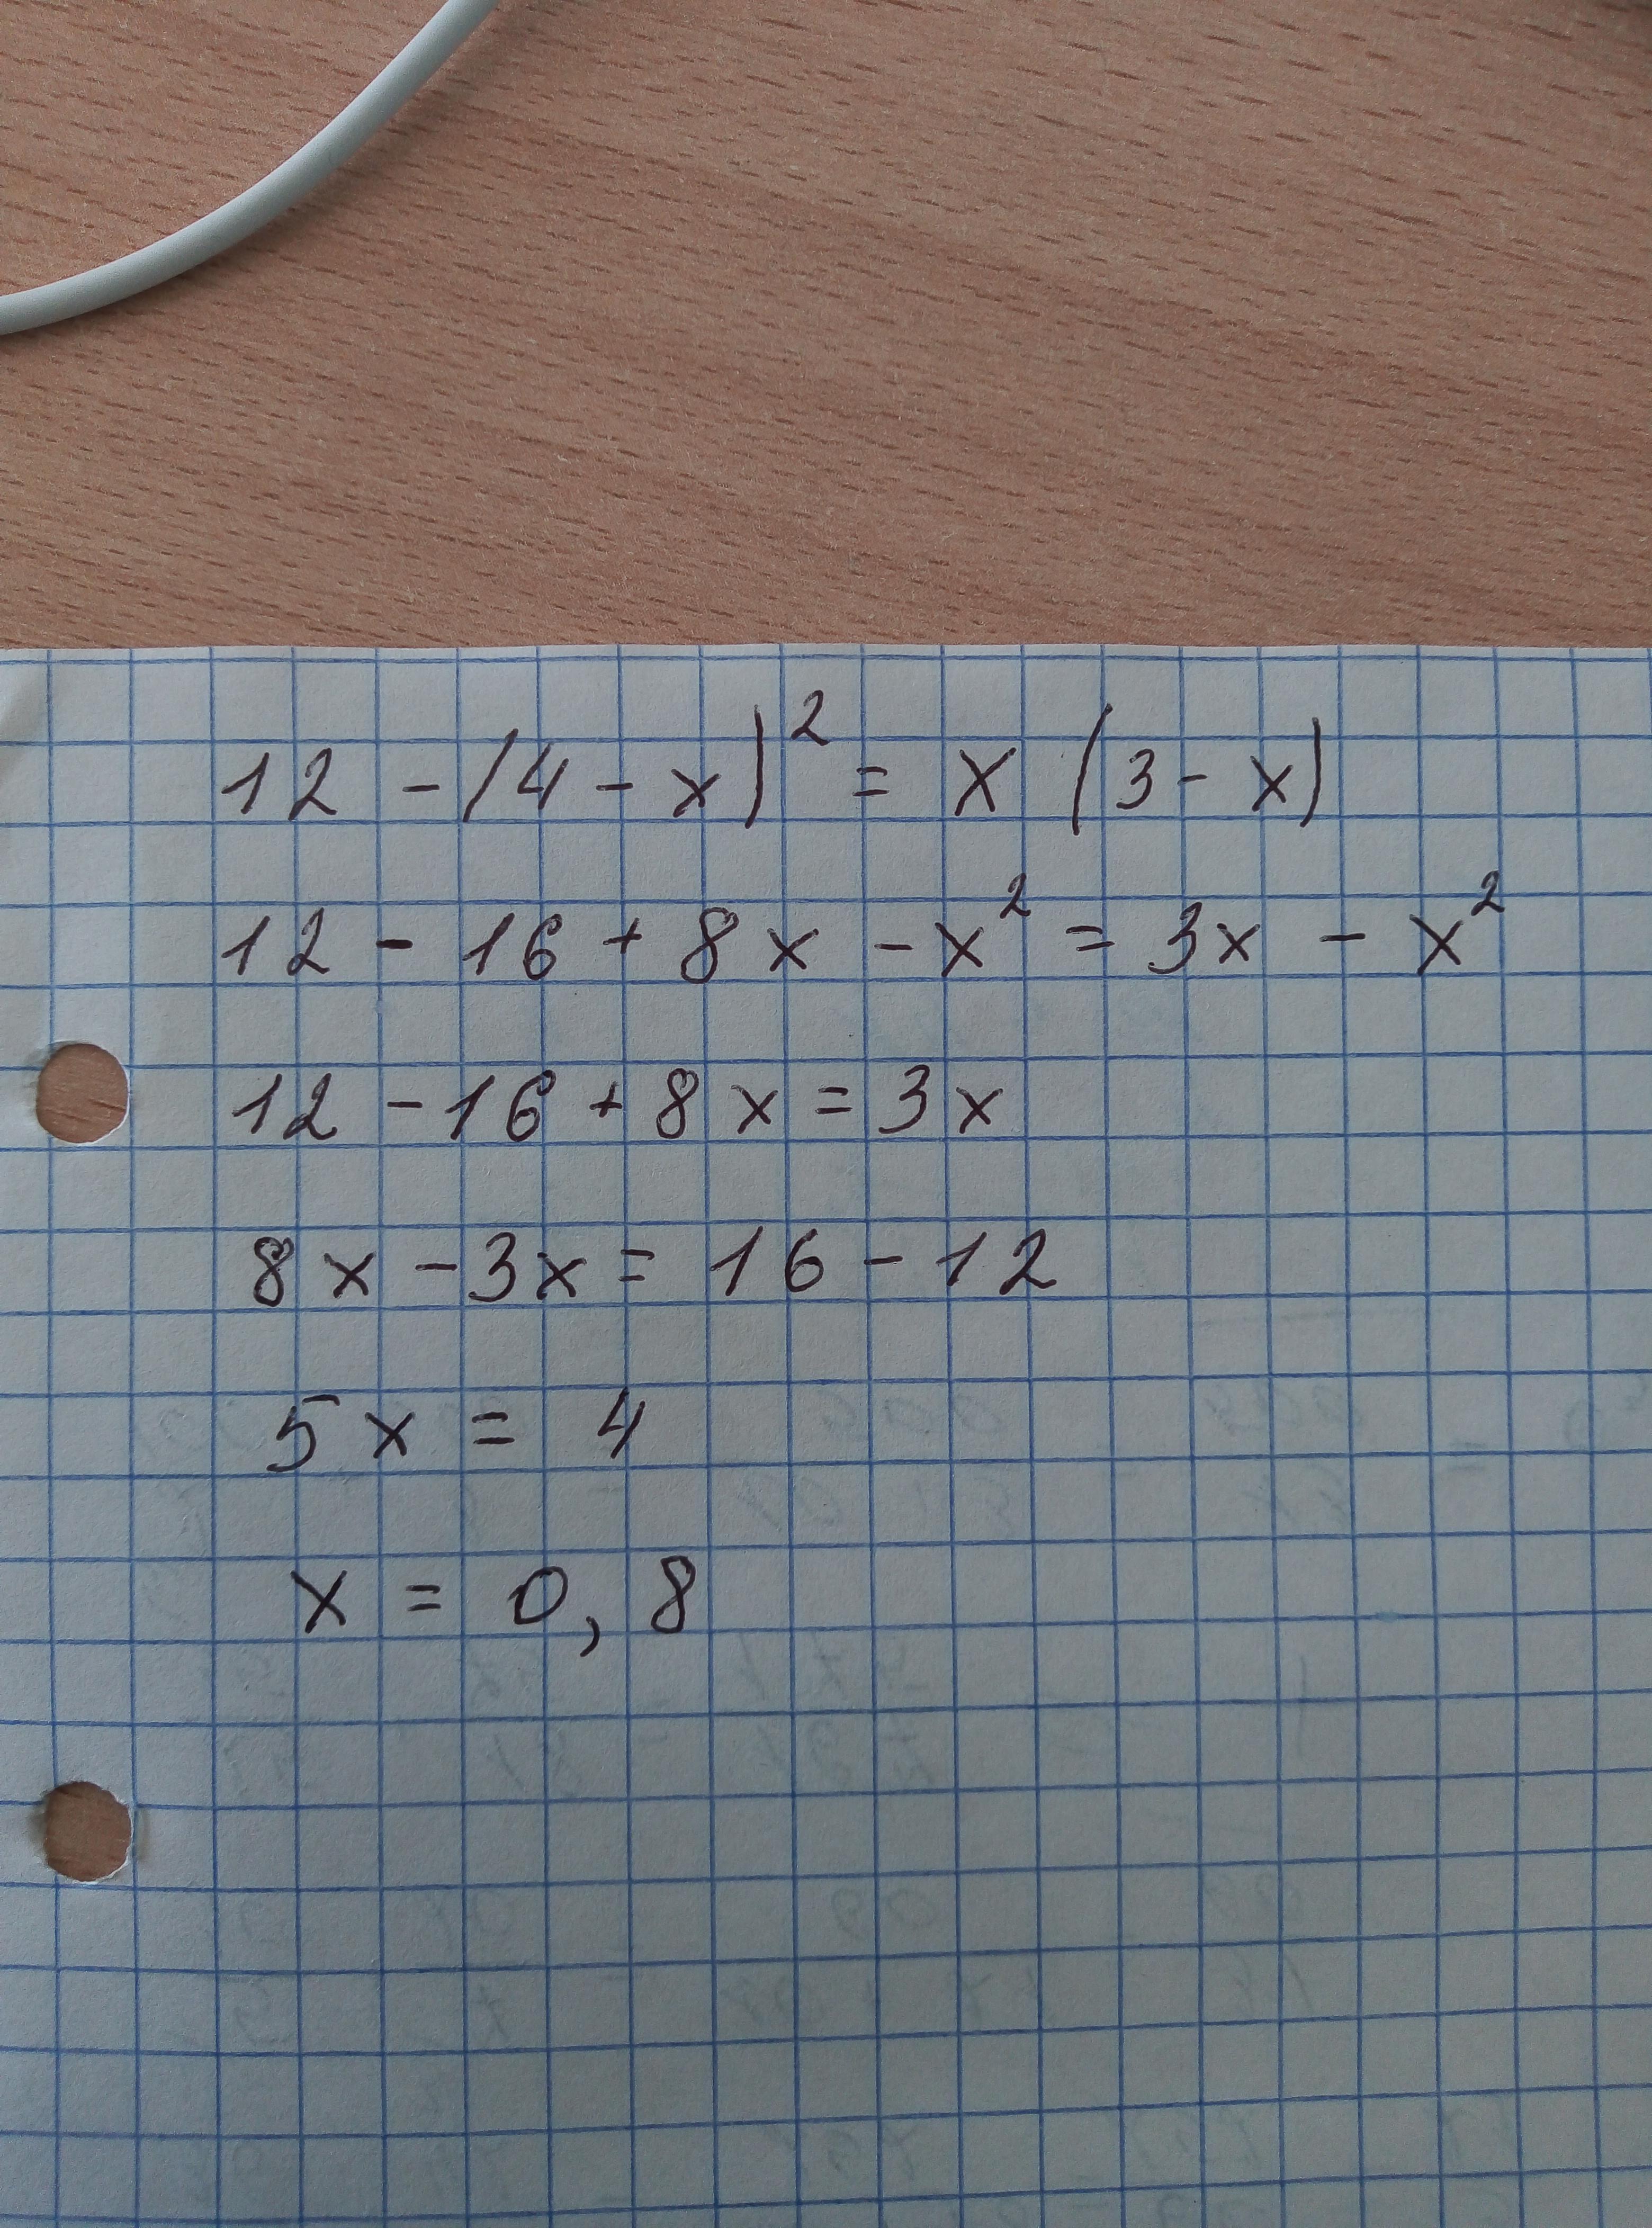 12 - (4 - x)² = x (3 - x)
12 - 16 + 8x - x² = 3x - x²
12 - 16 + 8x = 3x
8x - 3x = 16 - 12
5x = 4
x = 0,8